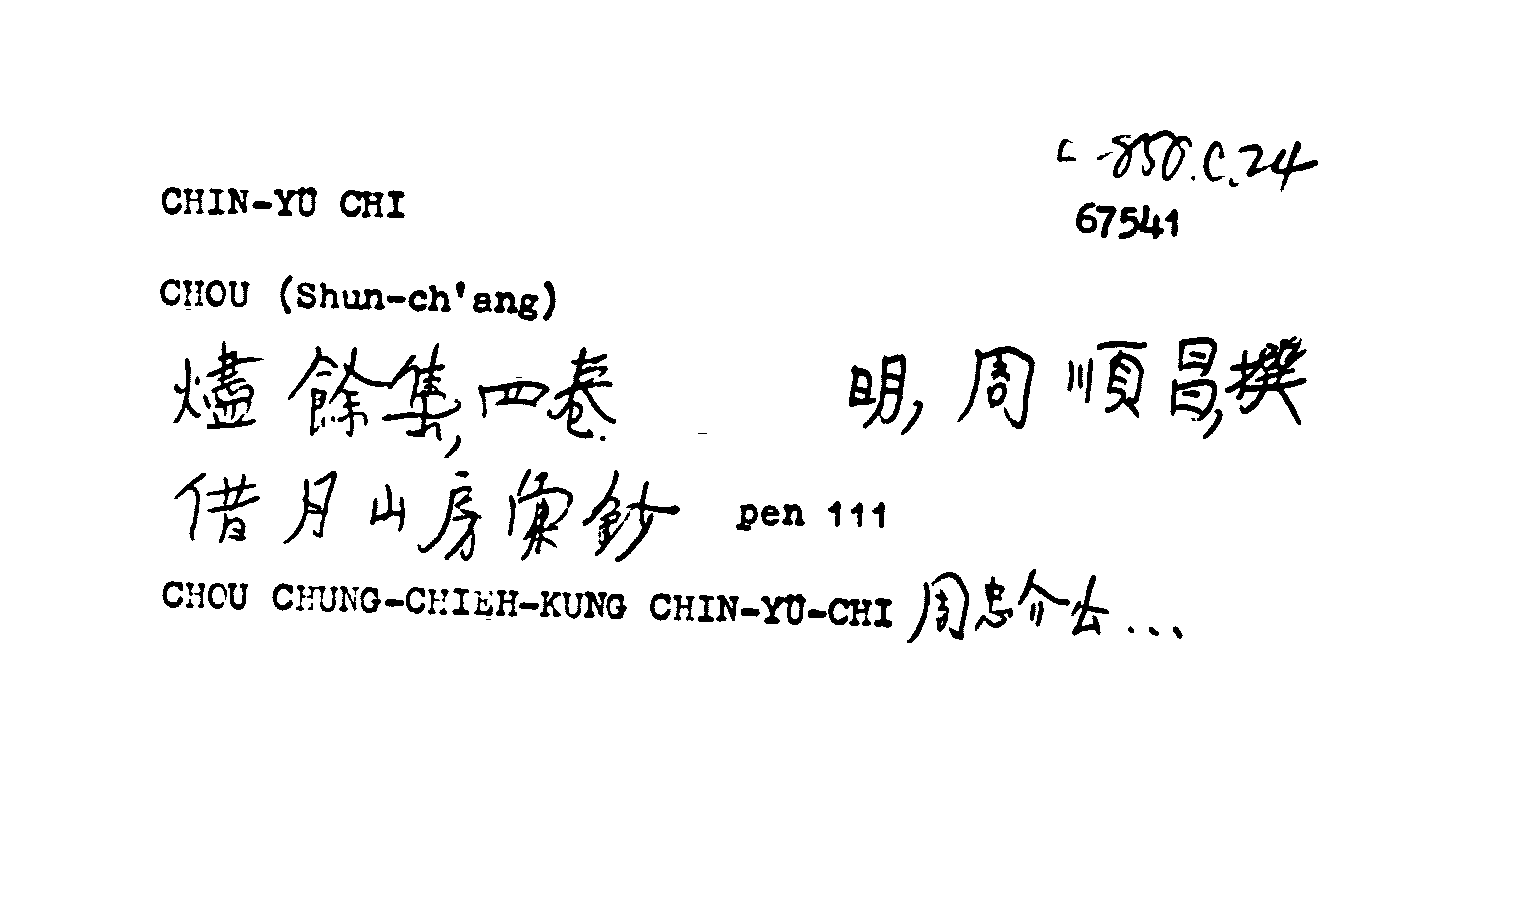 C-850.C.24
CHIN-YÜ CHI
67541
CHOU (Shun-ch'ang)
燼餘集,四卷. 明,周順昌,撰
借月山房彙鈔 pen 111
CHOU CHUNG-CHIEH-KUNG CHIN-YÜ-CHI 周忠介公...